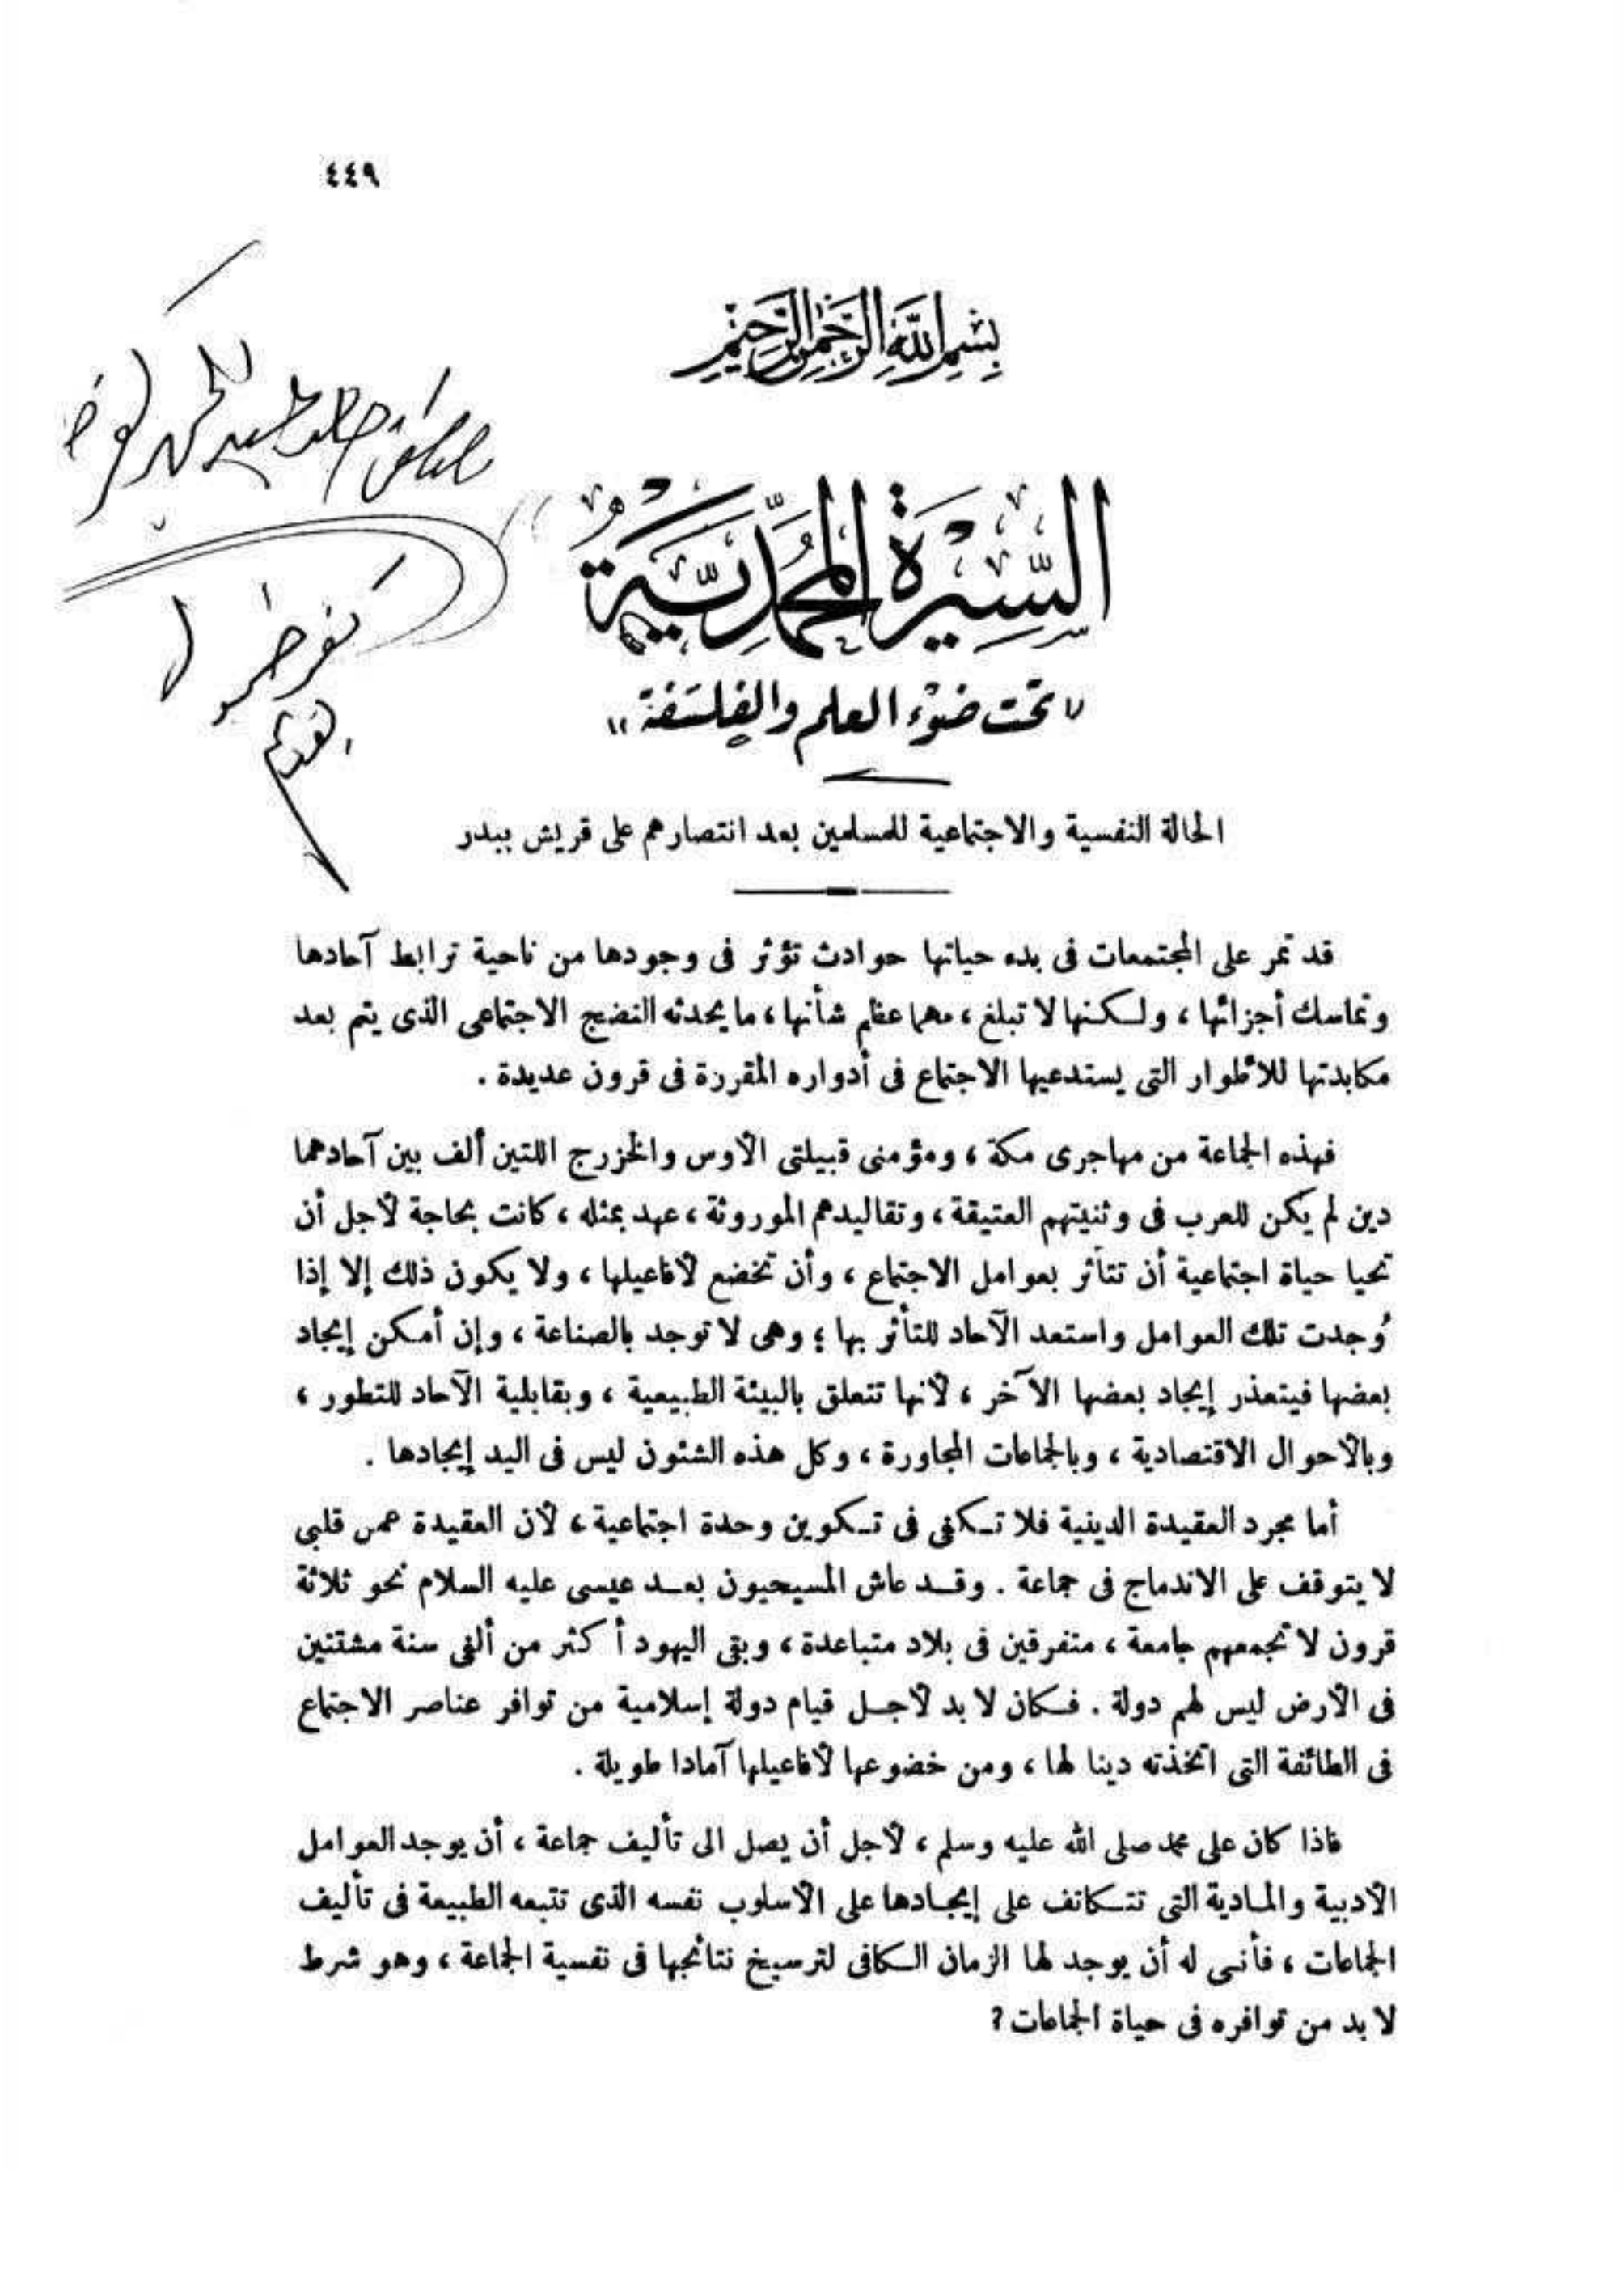 ٤٤٩
بِسْمِ اللَّهِ الرَّحْمَٰنِ الرَّحِيمِ
السِّيرَةُ المُحَمَّدِيَّةُ
«تحت ضَوْء العلم والفلسَفة»
الحالة النفسية والاجتماعية للمسلمين بعد انتصارهم على قريش ببدر
قد تمر على المجتمعات فى بدء حياتها حوادث تؤثر فى وجودها من ناحية ترابط آحادها
وتماسك أجزائها ، ولكنها لا تبلغ ، مهما عظم شأنها ، ما يحدثه النضج الاجتماعى الذى يتم بعد
مكابدتها للأطوار التى يستدعيها الاجتماع فى أدواره المقررة فى قرون عديدة .
فهذه الجماعة من مهاجرى مكة ، ومؤمنى قبيلتى الأوس والخزرج اللتين ألف بين آحادهما
دين لم يكن للعرب فى وثنيتهم العتيقة ، وتقاليدهم الموروثة ، عهد بمثله ، كانت بحاجة لأجل أن
تحيا حياة اجتماعية أن تتأثر بعوامل الاجتماع ، وأن تخضع لأفاعيلها ، ولا يكون ذلك إلا إذا
وُجدت تلك العوامل واستعد الآحاد للتأثر بها ؛ وهى لا توجد بالصناعة ، وإن أمكن إيجاد
بعضها فيتعذر إيجاد بعضها الآخر ، لأنها تتعلق بالبيئة الطبيعية ، وبقابلية الآحاد للتطور ،
وبالأحوال الاقتصادية ، وبالجماعات المجاورة ، وكل هذه الشئون ليس فى اليد إيجادها .
أما مجرد العقيدة الدينية فلا تكفى فى تكوين وحدة اجتماعية ، لأن العقيدة عمل قلبى
لا يتوقف على الاندماج فى جماعة . وقد عاش المسيحيون بعد عيسى عليه السلام نحو ثلاثة
قرون لا تجمعهم جامعة ، متفرقين فى بلاد متباعدة ، وبقى اليهود أكثر من ألفى سنة مشتتين
فى الأرض ليس لهم دولة . فكان لا بد لأجل قيام دولة إسلامية من توافر عناصر الاجتماع
فى الطائفة التى اتخذته دينا لها ، ومن خضوعها لأفاعيلها آمادا طويلة .
فاذا كان على محمد صلى الله عليه وسلم ، لأجل أن يصل الى تأليف جماعة ، أن يوجد العوامل
الأدبية والمادية التى تتكاتف على إيجادها على الأسلوب نفسه الذى تتبعه الطبيعة فى تأليف
الجماعات ، فأنى له أن يوجد لها الزمان الكافى لترسيخ نتائجها فى نفسية الجماعة ، وهو شرط
لا بد من توافره فى حياة الجماعات ؟